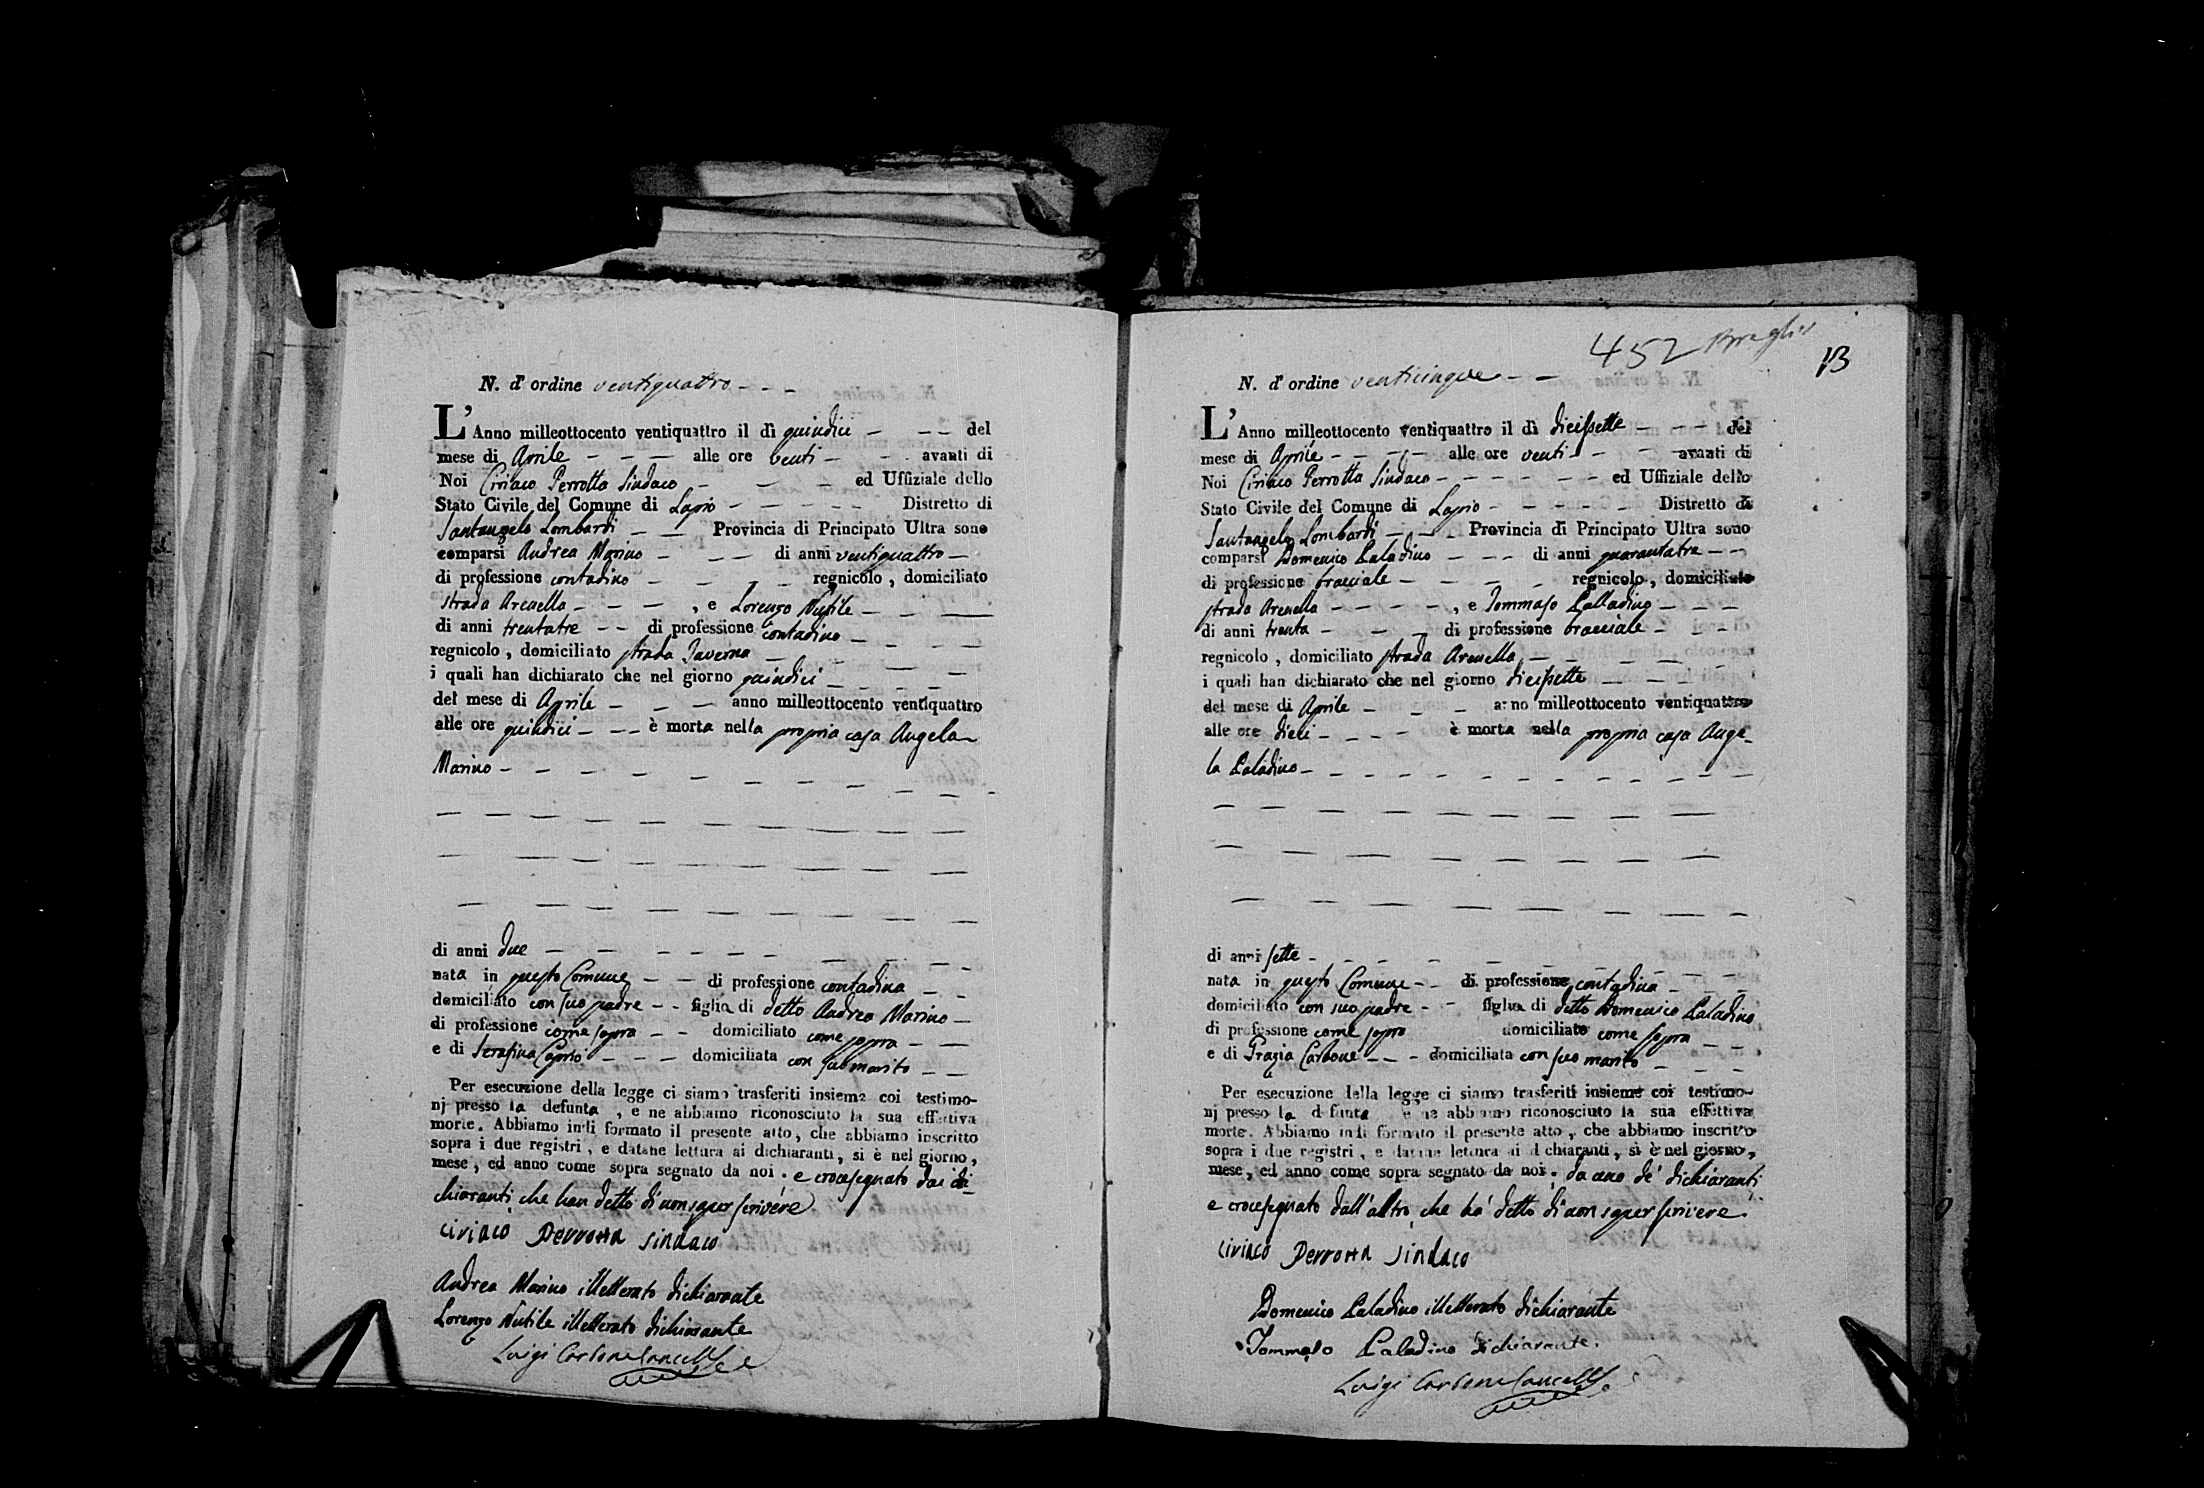 N. d'ordine ventiquattro
L'Anno milleottocento ventiquattro il dì quindici — — — del
mese di Aprile — — — alle ore venti — — avanti di
Noi Ciriaco Perrotta Sindaco — — — ed Uffiziale dello
Stato Civile del Comune di Lapio — — — — — Distretto di
Santangelo Lombardi — — Provincia di Principato Ultra sono
comparsi Andrea Marino — — — di anni ventiquattro —
di professione contadino — — — — regnicolo, domiciliato
strada Arenella — — —, e Lorenzo Nutile — — —
di anni trentatre — — di professione contadino —
regnicolo, domiciliato strada Taverna — — — —
i quali han dichiarato che nel giorno quindici — — — — —
del mese di Aprile — — — anno milleottocento ventiquattro
alle ore quindici — — — è morta nella propria casa Angela
Marino — — — — — — — — — —
di anni due — — — — — — — —
nata in questo Comune — — di professione contadina — —
domiciliato con suo padre — — figlia di detto Andrea Marino —
di professione come sopra — — domiciliato come sopra — —
e di Serafina Caprio — — — domiciliata con suo marito — —
Per esecuzione della legge ci siamo trasferiti insieme coi testimo-
nj presso la defunta, e ne abbiamo riconosciuto la sua effettiva
morte. Abbiamo indi formato il presente atto, che abbiamo inscritto
sopra i due registri, e datane lettura ai dichiaranti, si è nel giorno,
mese, ed anno come sopra segnato da noi. e crocesegnato dai di-
chiaranti che han detto di non saper scrivere
Ciriaco Perrotta Sindaco
Andrea Marino illetterato dichiarante
Lorenzo Nutile illetterato dichiarante
Luigi Carbone Cancell.e
452
13
N. d'ordine venticinque — —
L'Anno milleottocento ventiquattro il dì diciessette — — — del
mese di Aprile — — — — alle ore venti — — — avanti di
Noi Ciriaco Perrotta Sindaco — — — — — — ed Uffiziale dello
Stato Civile del Comune di Lapio — — — — — Distretto di
Santangelo Lombardi — — — Provincia di Principato Ultra sono
comparsi Domenico Paladino — — — di anni quarantatre — —
di professione bracciale — — — — — regnicolo, domiciliato
strada Arenella — — — — —, e Tommaso Palladino — — —
di anni trenta — — — di professione bracciale — — —
regnicolo, domiciliato strada Arenella — — — — —
i quali han dichiarato che nel giorno diciessette — — —
del mese di Aprile — — — anno milleottocento ventiquattro
alle ore dieci — — — — è morta nella propria casa Ange-
la Paladino — — — — — — — — — — —
di anni sette — — — — — — —
nata in questo Comune — — di professione contadina — — —
domiciliato con suo padre — — figlia di detto Domenico Paladino
di professione come sopra domiciliato come sopra — —
e di Grazia Carbone — — — domiciliata con suo marito — — —
Per esecuzione della legge ci siamo trasferiti insieme coi testimo-
nj presso la defunta e ne abbiamo riconosciuto la sua effettiva
morte. Abbiamo indi formato il presente atto, che abbiamo inscritto
sopra i due registri, e datane lettura ai dichiaranti, si è nel giorno,
mese, ed anno come sopra segnato da noi. da uno de' dichiaranti
e crocesegnato dall'altro che ha detto di non saper scrivere
Ciriaco Perrotta Sindaco
Domenico Paladino illetterato dichiarante
Tommaso Paladino dichiarante.
Luigi Carbone Cancell.e